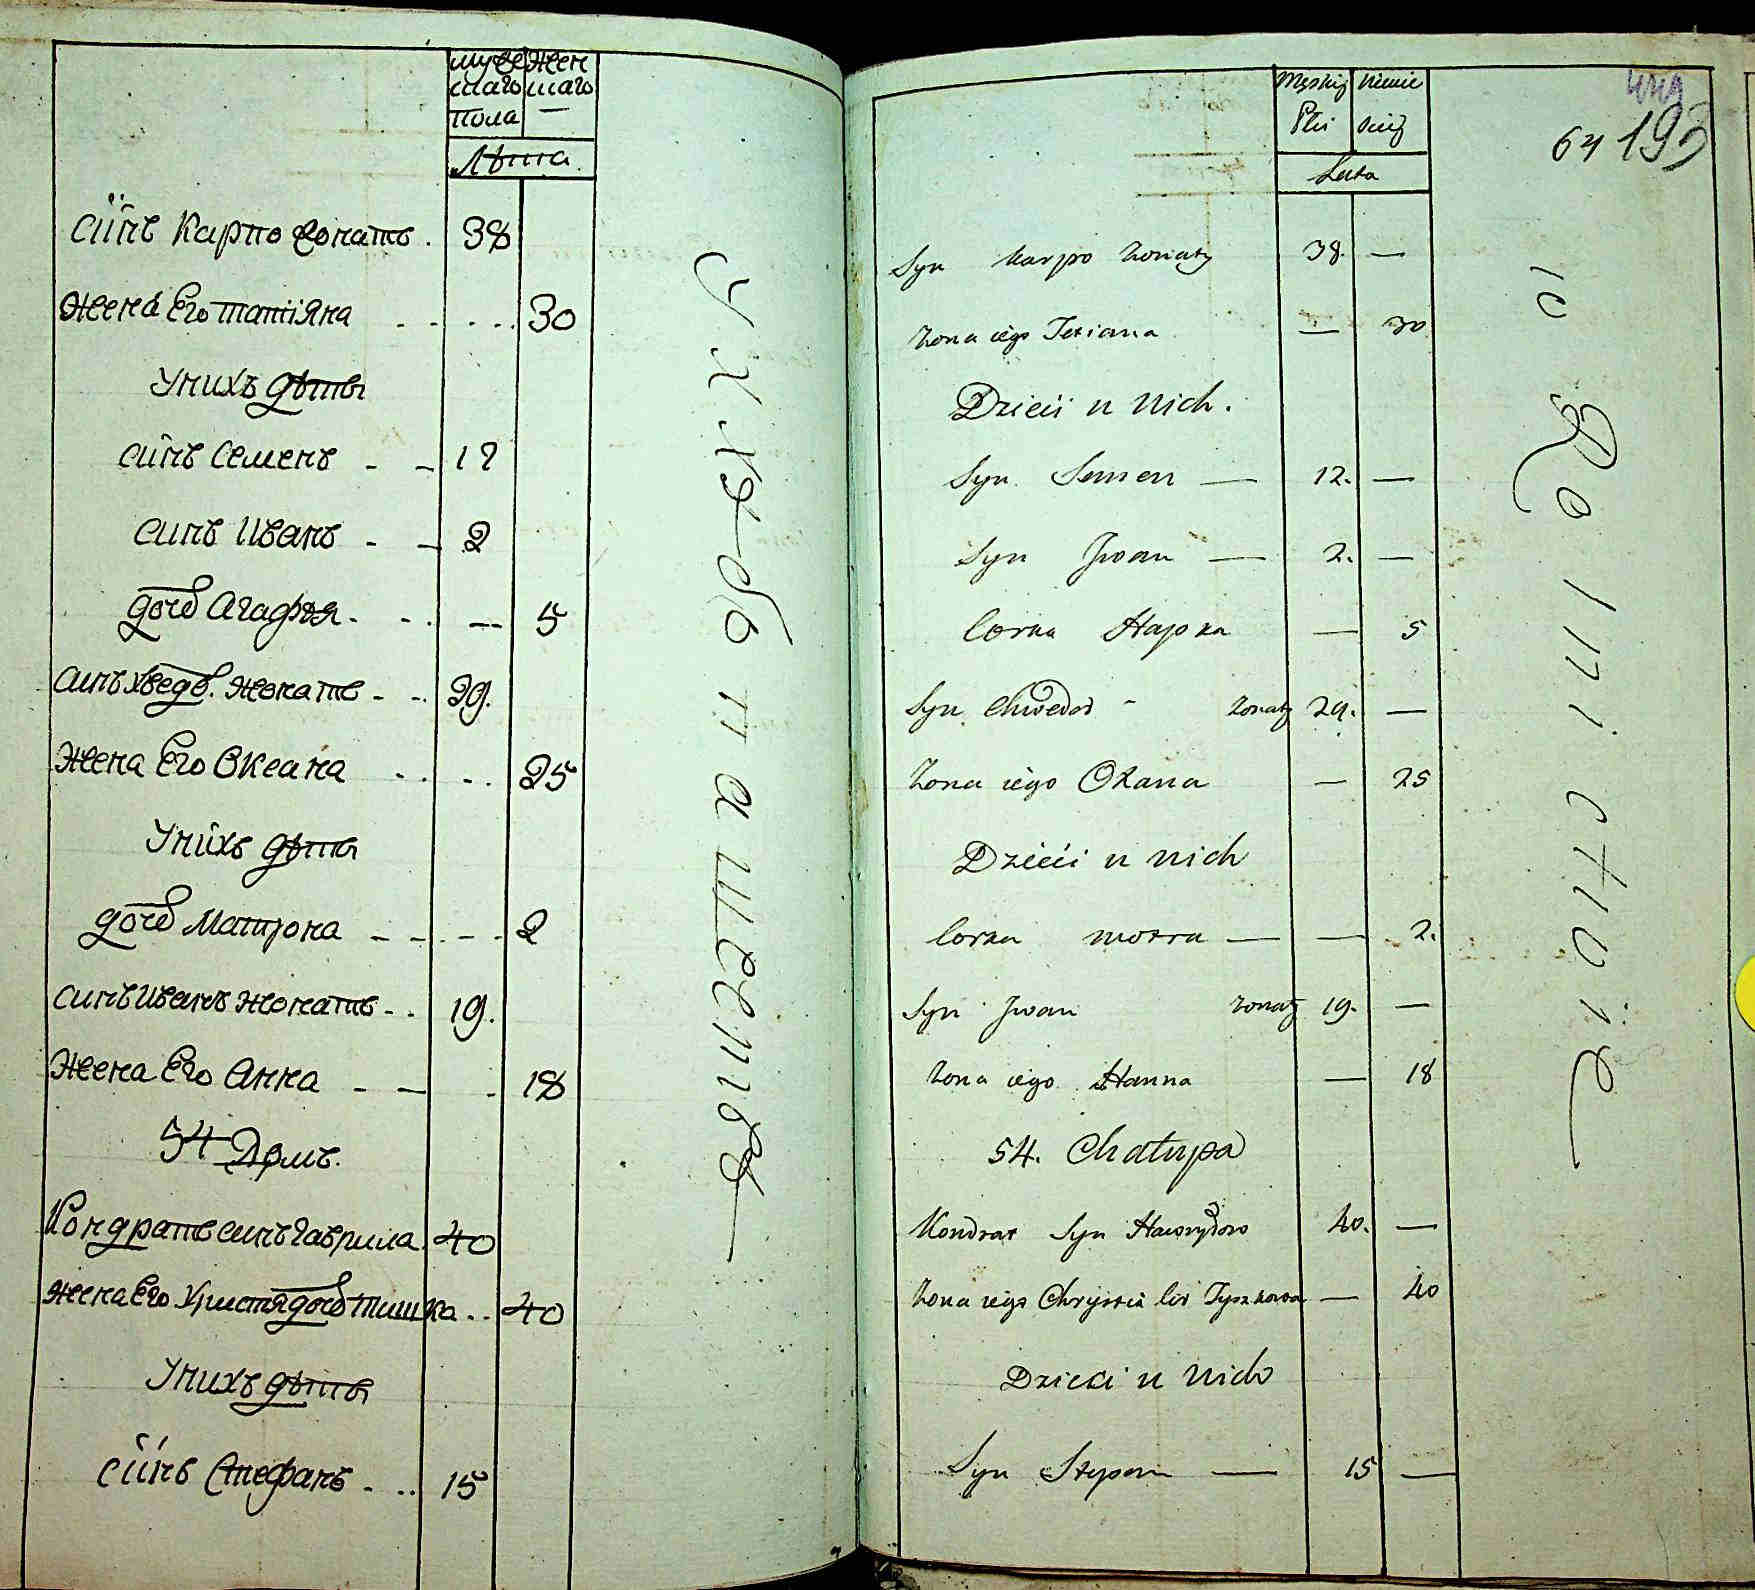 мужескаго
пола
женскаго
—
Лѣта.
сінъ Карпо жонатъ. 38
жена Его татіяна ..... 30
Унихъ дѣты
сінъ Семенъ - - 12
синъ Иванъ - - 2
дочь Агафія. - . -- 5
синъ хведо͏ръ. жонатъ - -. 29.
жена Его Оксана .. .. 25
Унихъ дѣты
дочь Матрона - - - - 2
синъ Иванъ жонатъ - . 19.
жена Его Анна - - - 18
54 Домъ.
Кондратъ синъ Гаврила. 40
жена Его Христя дочь тишка .. 40
Унихъ дѣты
сінъ Стефанъ - .. 15
Ххлѣбо пашенныѣ
Męskiej
Płci
Niewie
skiej
Lata
64 193
Syn Karpo żonaty 38. —
żona iego Tetiana — 30
Dzieći u Nich.
Syn Semen — 12. —
Syn Jwan — 2. —
Corka Hapka — 5
Syn Chwedor - żonaty 29. —
żona iego Oxana — 25
Dzieći u nich
Corka Motra — — 2.
Syn Jwan żonaty 19. —
żona iego Hanna — 18
54. Chałupa
Kondrat Syn Hawryłow 40. —
żona iego Chrystia Cor Tyszkowa — 40
Dzieci u Nich
Syn Stepan — 15 —
10 Rolnictwie